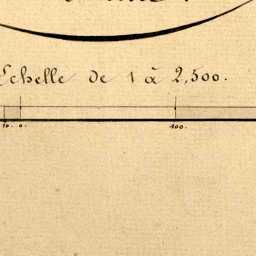 Echelle de 1 à 2,500.
10. 0. 100.